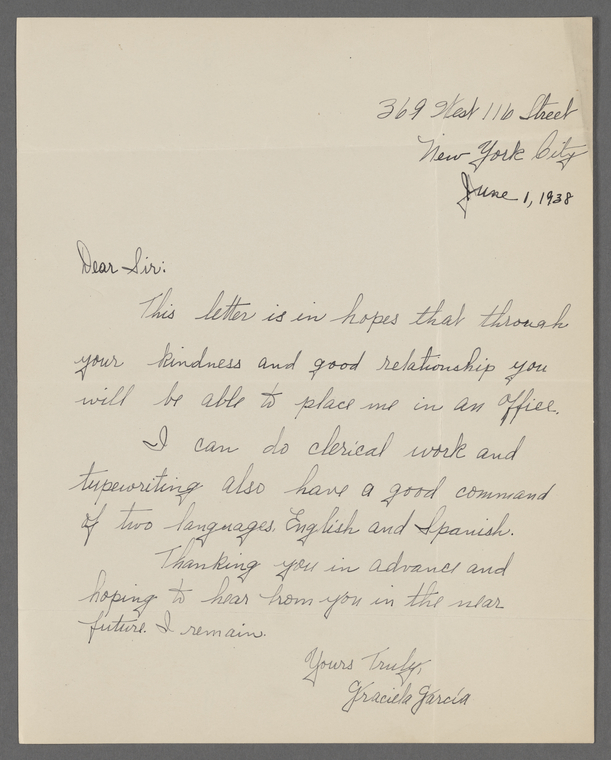 369 West 116 Street
New York City
June 1, 1938
Dear Sir:
This letter is in hopes that through
your kindness and good relationship you
will be able to place me in an office.
I can do clerical work and
typewriting also have a good command
of two languages, English and Spanish.
Thanking you in advance and
hoping to hear from you in the near
future. I remain.
Yours Truly,
Graciela García